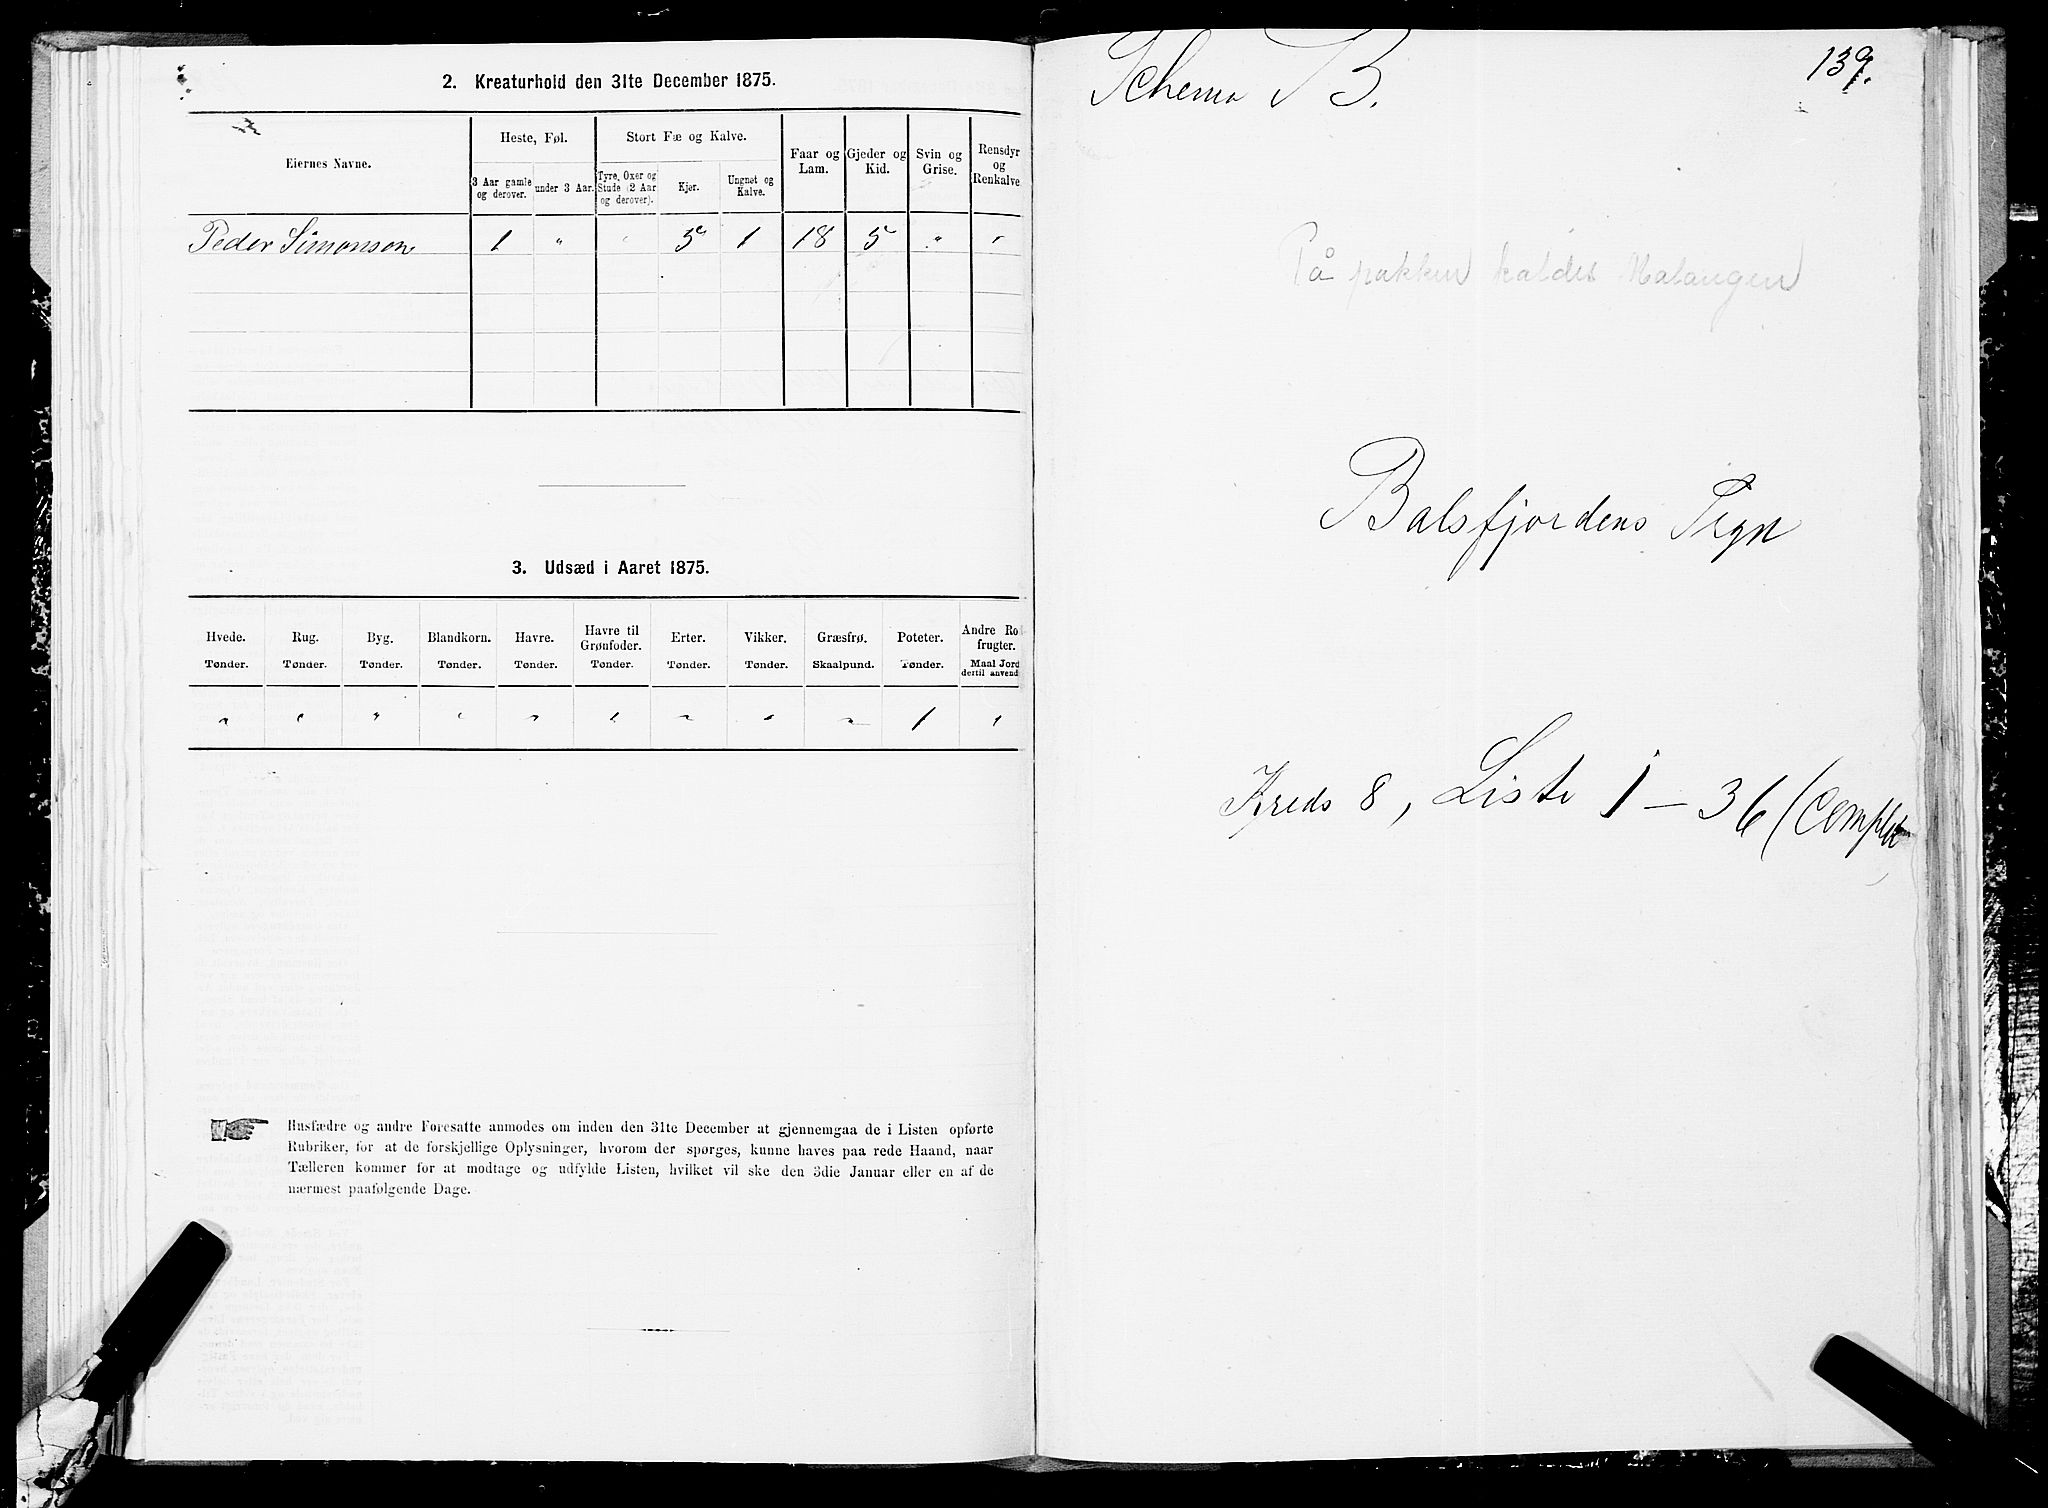 2. Kreaturhold den 31te December 1875.
Eiernes Navne.
Heste, Føl.
Stort Fæ og Kalve.
Faar og
Lam.
Gjeder og
Kid.
Svin og
Grise.
Rensdyr
og
Renkalve
3 Aar gamle
og derover.
under 3 Aar.
Tyre, Oxer og
Stude (2 Aar
og derover).
Kjør.
Ungnøt og
Kalve.
Peder Simonsen 1 " " 5 1 18 5 " "
3. Udsæd i Aaret 1875.
Hvede.
Tønder.
Rug.
Tønder.
Byg.
Tønder.
Blandkorn.
Tønder.
Havre.
Tønder.
Havre til
Grønfoder.
Tønder.
Erter.
Tønder.
Vikker.
Tønder.
Græsfrø.
Skaalpund.
Poteter.
Tønder.
Andre Ro
frugter.
Maal Jord
dertil anvend
" " " " " " " " " 1 "
Husfædre og andre Foresatte anmodes om inden den 31te December at gjennemgaa de i Listen opførte
Rubriker, for at de forskjellige Oplysninger, hvorom der spørges, kunne haves paa rede Haand, naar
Tælleren kommer for at modtage og udfylde Listen, hvilket vil ske den 3die Januar eller en af de
nærmest paafølgende Dage.
Schema B.
139.
På pakken kaldes Malangen
Balsfjordens Prgn
Kreds 8, Liste 1-36 (Complet